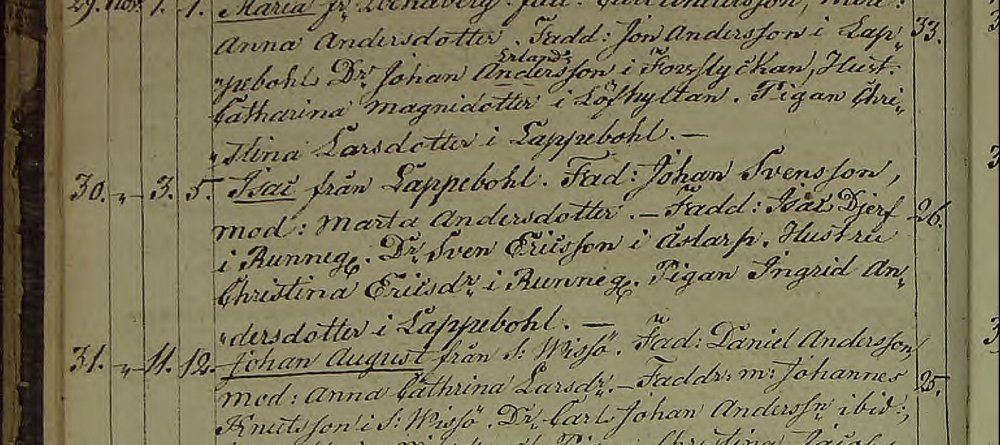 29. Nov. 1. 1. Maria fr. Fad: Carl Andersson, Mod:
Anna Andersdotter. Fadd: Jon Andersson i Lap„ 33.
Erlands
„pebohl Dr. Johan Andersson i Forslyckan, Hust.
Catharina Magnidotter i Löfhyltan. Pigan Chri„
„stina Larsdotter i Lappebohl. —
30. „ 3. 5. Isac från Lappebohl. Fad: Johan Svensson,
mod: Marta Andersdotter. — Fadd: Isac Djerf 26.
i Runneg. Dr. Sven Ericsson i Åstarp. Hustru
Christina Ericsdr i Runneg. Pigan Ingrid An„
„dersdotter i Lappebohl. —
31. „ 11. 12. Johan August från S: Wissö. Fad: Daniel Andersson
mod: Anna Cathrina Larsdr. — Faddr: m: Johannes 25.
Knutsson i S: Wissö. Dr. Carl Johan Anderssn ibid:,
Christina